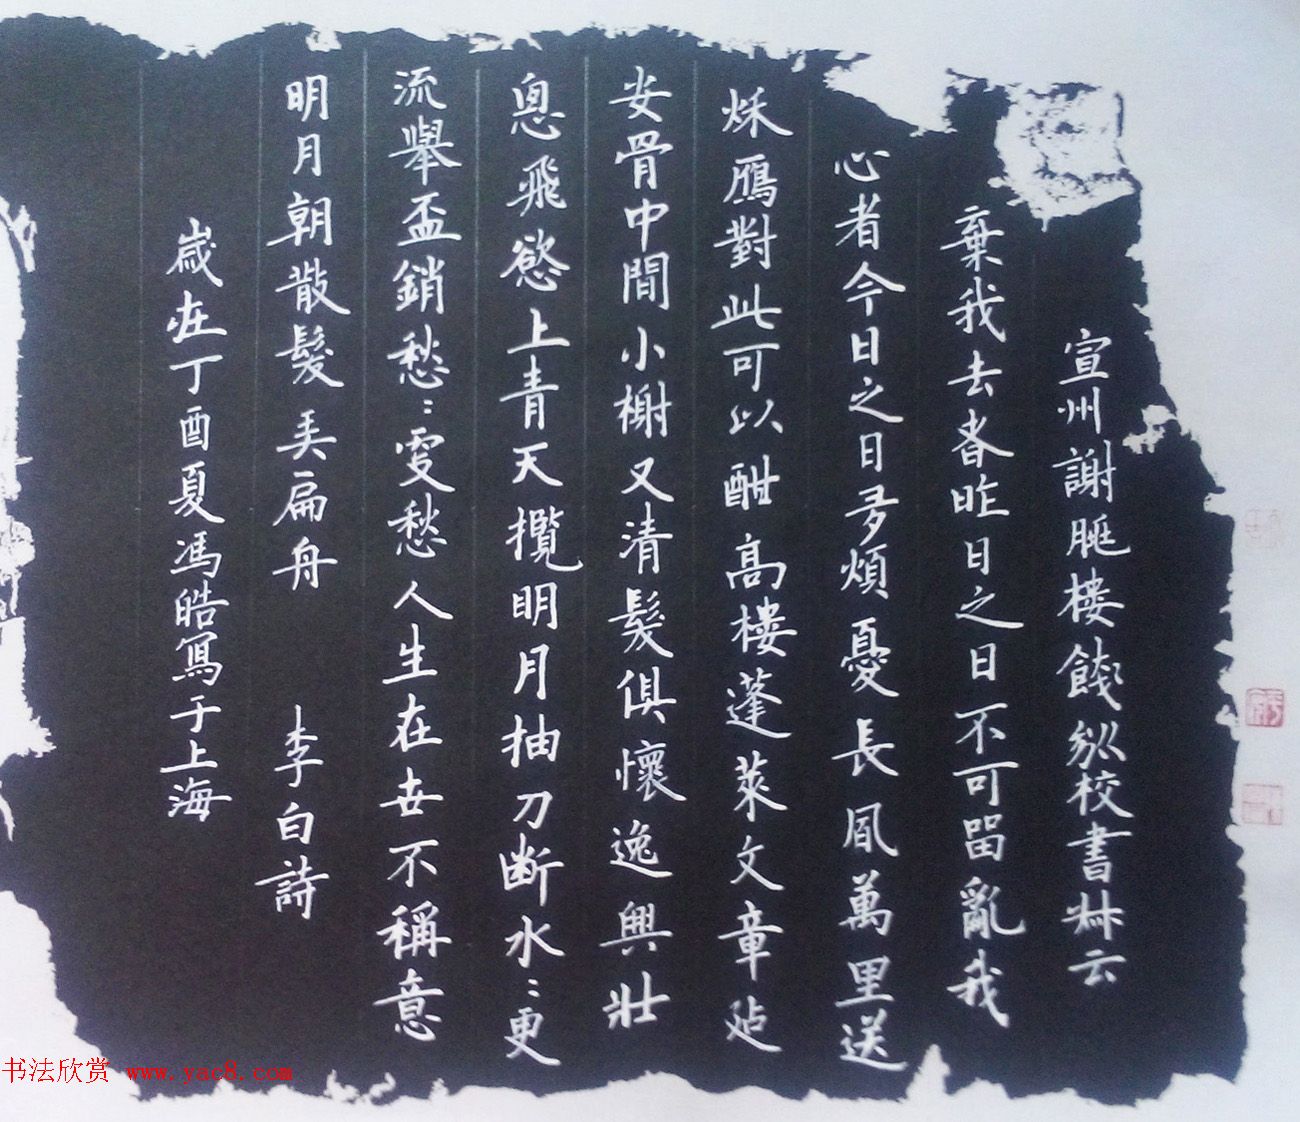 宣州謝脁樓餞別校書叔云
棄我去者昨日之日不可留亂我
心者今日之日多煩憂長風萬里送
秋鴈對此可以酣高樓蓬萊文章建
安骨中間小榭又清髮俱懷逸興壯
思飛慾上青天攬明月抽刀斷水：更
流舉盃銷愁：更愁人生在世不稱意
明月朝散髮弄扁舟 李白詩
歲在丁酉夏馮皓寫于上海
书法欣赏 www.yac8.com